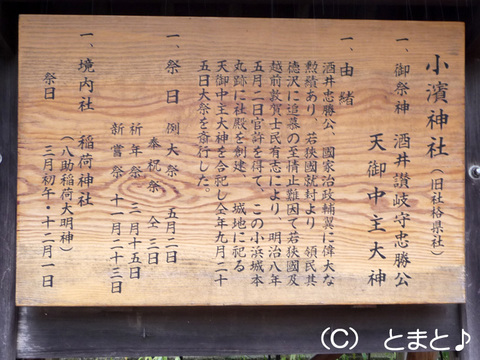 小濱神社（旧社格県社）
一、御祭神 酒井讃岐守忠勝公
天御中主大神
一、由緒
酒井忠勝公、國家治政輔翼に偉大な
勲績あり、若狭國就封より、領民其
徳沢に追慕の至情止難因て若狭國及
越前敦賀士民有志により、明治八年
五月二日官許を得て、この小浜城本
丸跡に社殿を創建、城地に祀る
天御中主大神を合祀し仝年九月二十
五日大祭を斎行した。
一、祭日 例大祭 五月二日
奉祝祭 仝三日
祈年祭 三月十五日
新嘗祭 十一月二十三日
一、境内社 稲荷神社
（八助稲荷大明神）
祭日 三月初午・十二月一日
（C） とまと♪